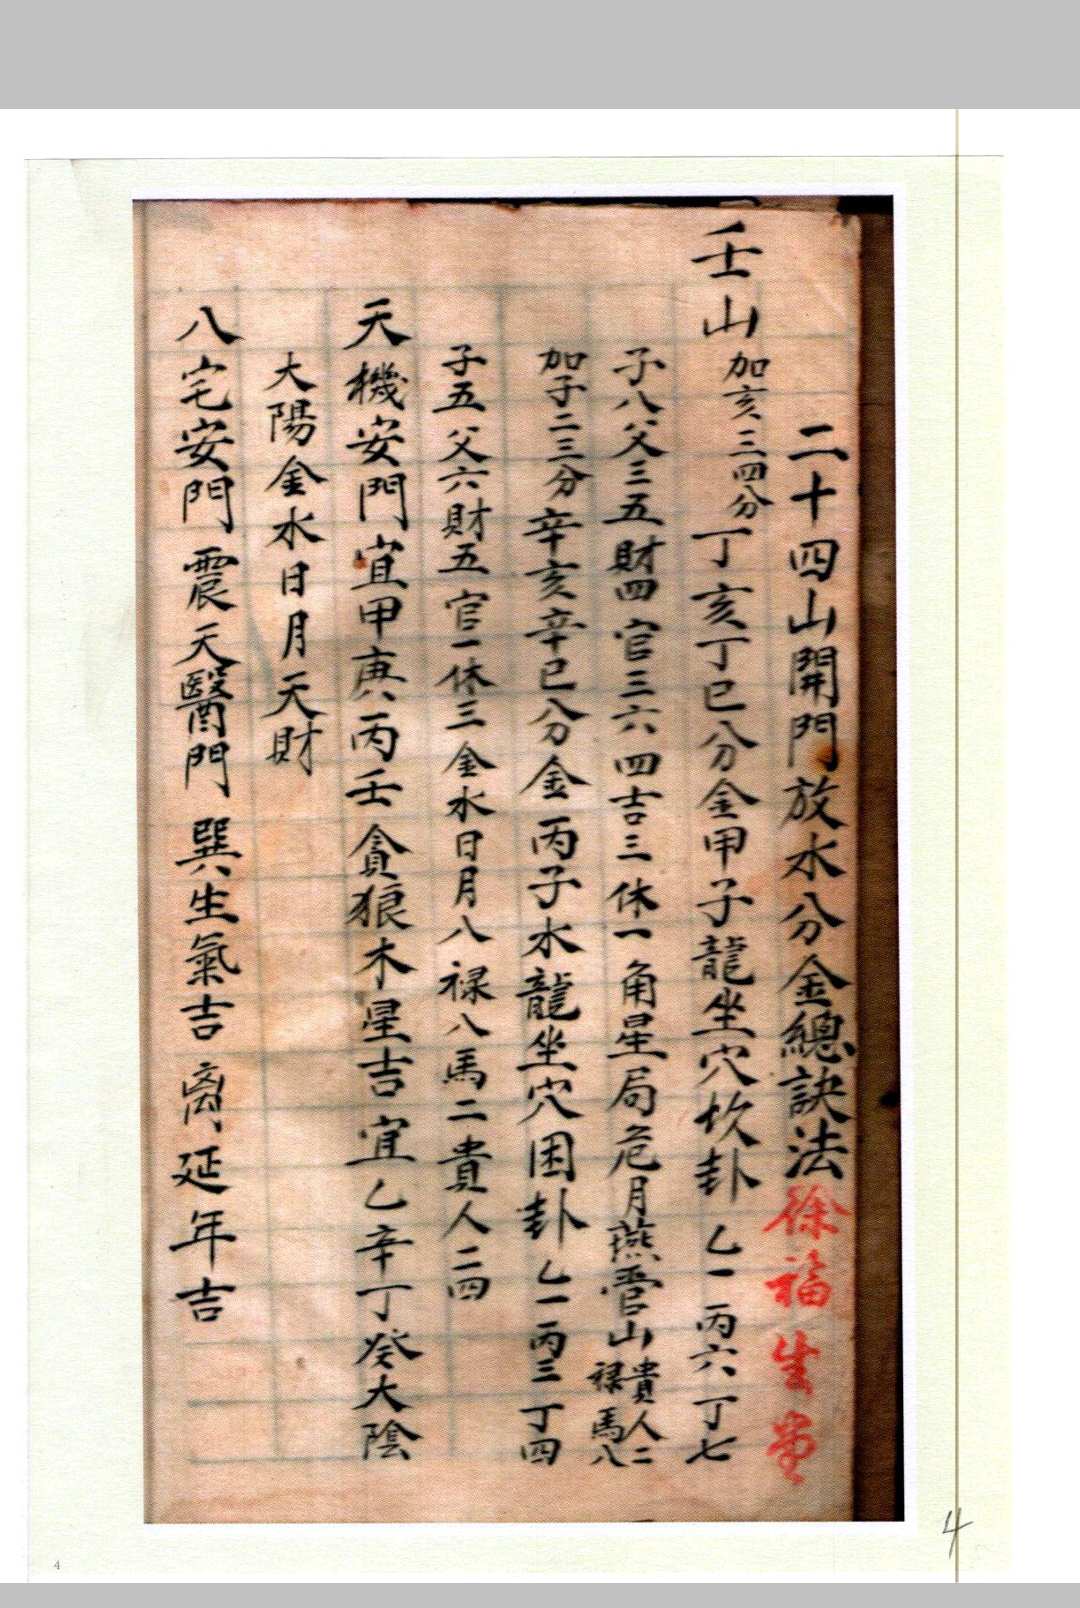 二十四山開門放水分金總訣法徐福生堂
壬山加亥三四分丁亥丁巳分金甲子龍坐穴坎卦乙一丙六丁七
子八父三五財四官三六四吉三休一角星局危月燕 山貴人二禄馬八
加子二三分辛亥辛巳分金丙子水龍坐穴困卦乙一丙三丁四
子五父六財五官一休三金水日月八禄八馬二貴人二四
天機安門宜甲庚丙壬貪狼木星吉宜乙辛丁癸大陰
大陽金水日月天財
八宅安門震天醫門巽生氣吉离延年吉
4
4